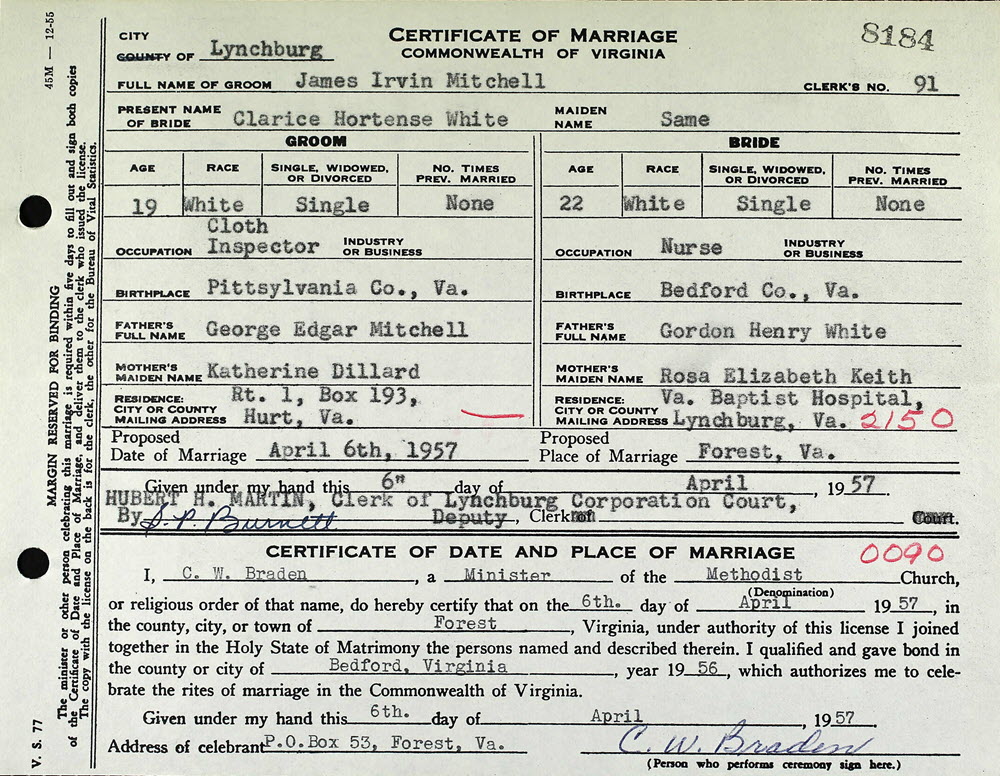 CITY
COUNTY OF Lynchburg
CERTIFICATE OF MARRIAGE
COMMONWEALTH OF VIRGINIA
8184
FULL NAME OF GROOM James Irvin Mitchell CLERK'S NO. 91
PRESENT NAME OF BRIDE Clarice Hortense White MAIDEN NAME Same
GROOM BRIDE
AGE RACE SINGLE, WIDOWED, OR DIVORCED NO. TIMES PREV. MARRIED AGE RACE SINGLE, WIDOWED, OR DIVORCED NO. TIMES PREV. MARRIED
19 White Single None 22 White Single None
OCCUPATION Cloth Inspector INDUSTRY OR BUSINESS OCCUPATION Nurse INDUSTRY OR BUSINESS
BIRTHPLACE Pittsylvania Co., Va. BIRTHPLACE Bedford Co., Va.
FATHER'S FULL NAME George Edgar Mitchell FATHER'S FULL NAME Gordon Henry White
MOTHER'S MAIDEN NAME Katherine Dillard MOTHER'S MAIDEN NAME Rosa Elizabeth Keith
RESIDENCE: Rt. 1, Box 193, RESIDENCE: Va. Baptist Hospital,
CITY OR COUNTY MAILING ADDRESS Hurt, Va. CITY OR COUNTY MAILING ADDRESS Lynchburg, Va. 2150
Proposed Date of Marriage April 6th, 1957 Proposed Place of Marriage Forest, Va.
Given under my hand this 6" day of April, 1957.
HUBERT H. MARTIN, Clerk of Lynchburg Corporation Court,
By S. P. Burnett Deputy, Clerk of Court.
CERTIFICATE OF DATE AND PLACE OF MARRIAGE 0090
I, C. W. Braden, a Minister of the Methodist Church,
(Denomination)
or religious order of that name, do hereby certify that on the 6th. day of April 1957, in
the county, city, or town of Forest, Virginia, under authority of this license I joined
together in the Holy State of Matrimony the persons named and described therein. I qualified and gave bond in
the county or city of Bedford, Virginia, year 1956, which authorizes me to cele-
brate the rites of marriage in the Commonwealth of Virginia.
Given under my hand this 6th. day of April, 1957.
Address of celebrant P.O.Box 53, Forest, Va. C. W. Braden
(Person who performs ceremony sign here.)
45M — 12-55
MARGIN RESERVED FOR BINDING
The minister or other person celebrating this marriage is required within five days to fill out and sign both copies
of the Certificate of Date and Place of Marriage, and deliver them to the clerk who issued the license.
The copy with the license on the back is for the clerk, the other for the Bureau of Vital Statistics.
V. S. 77